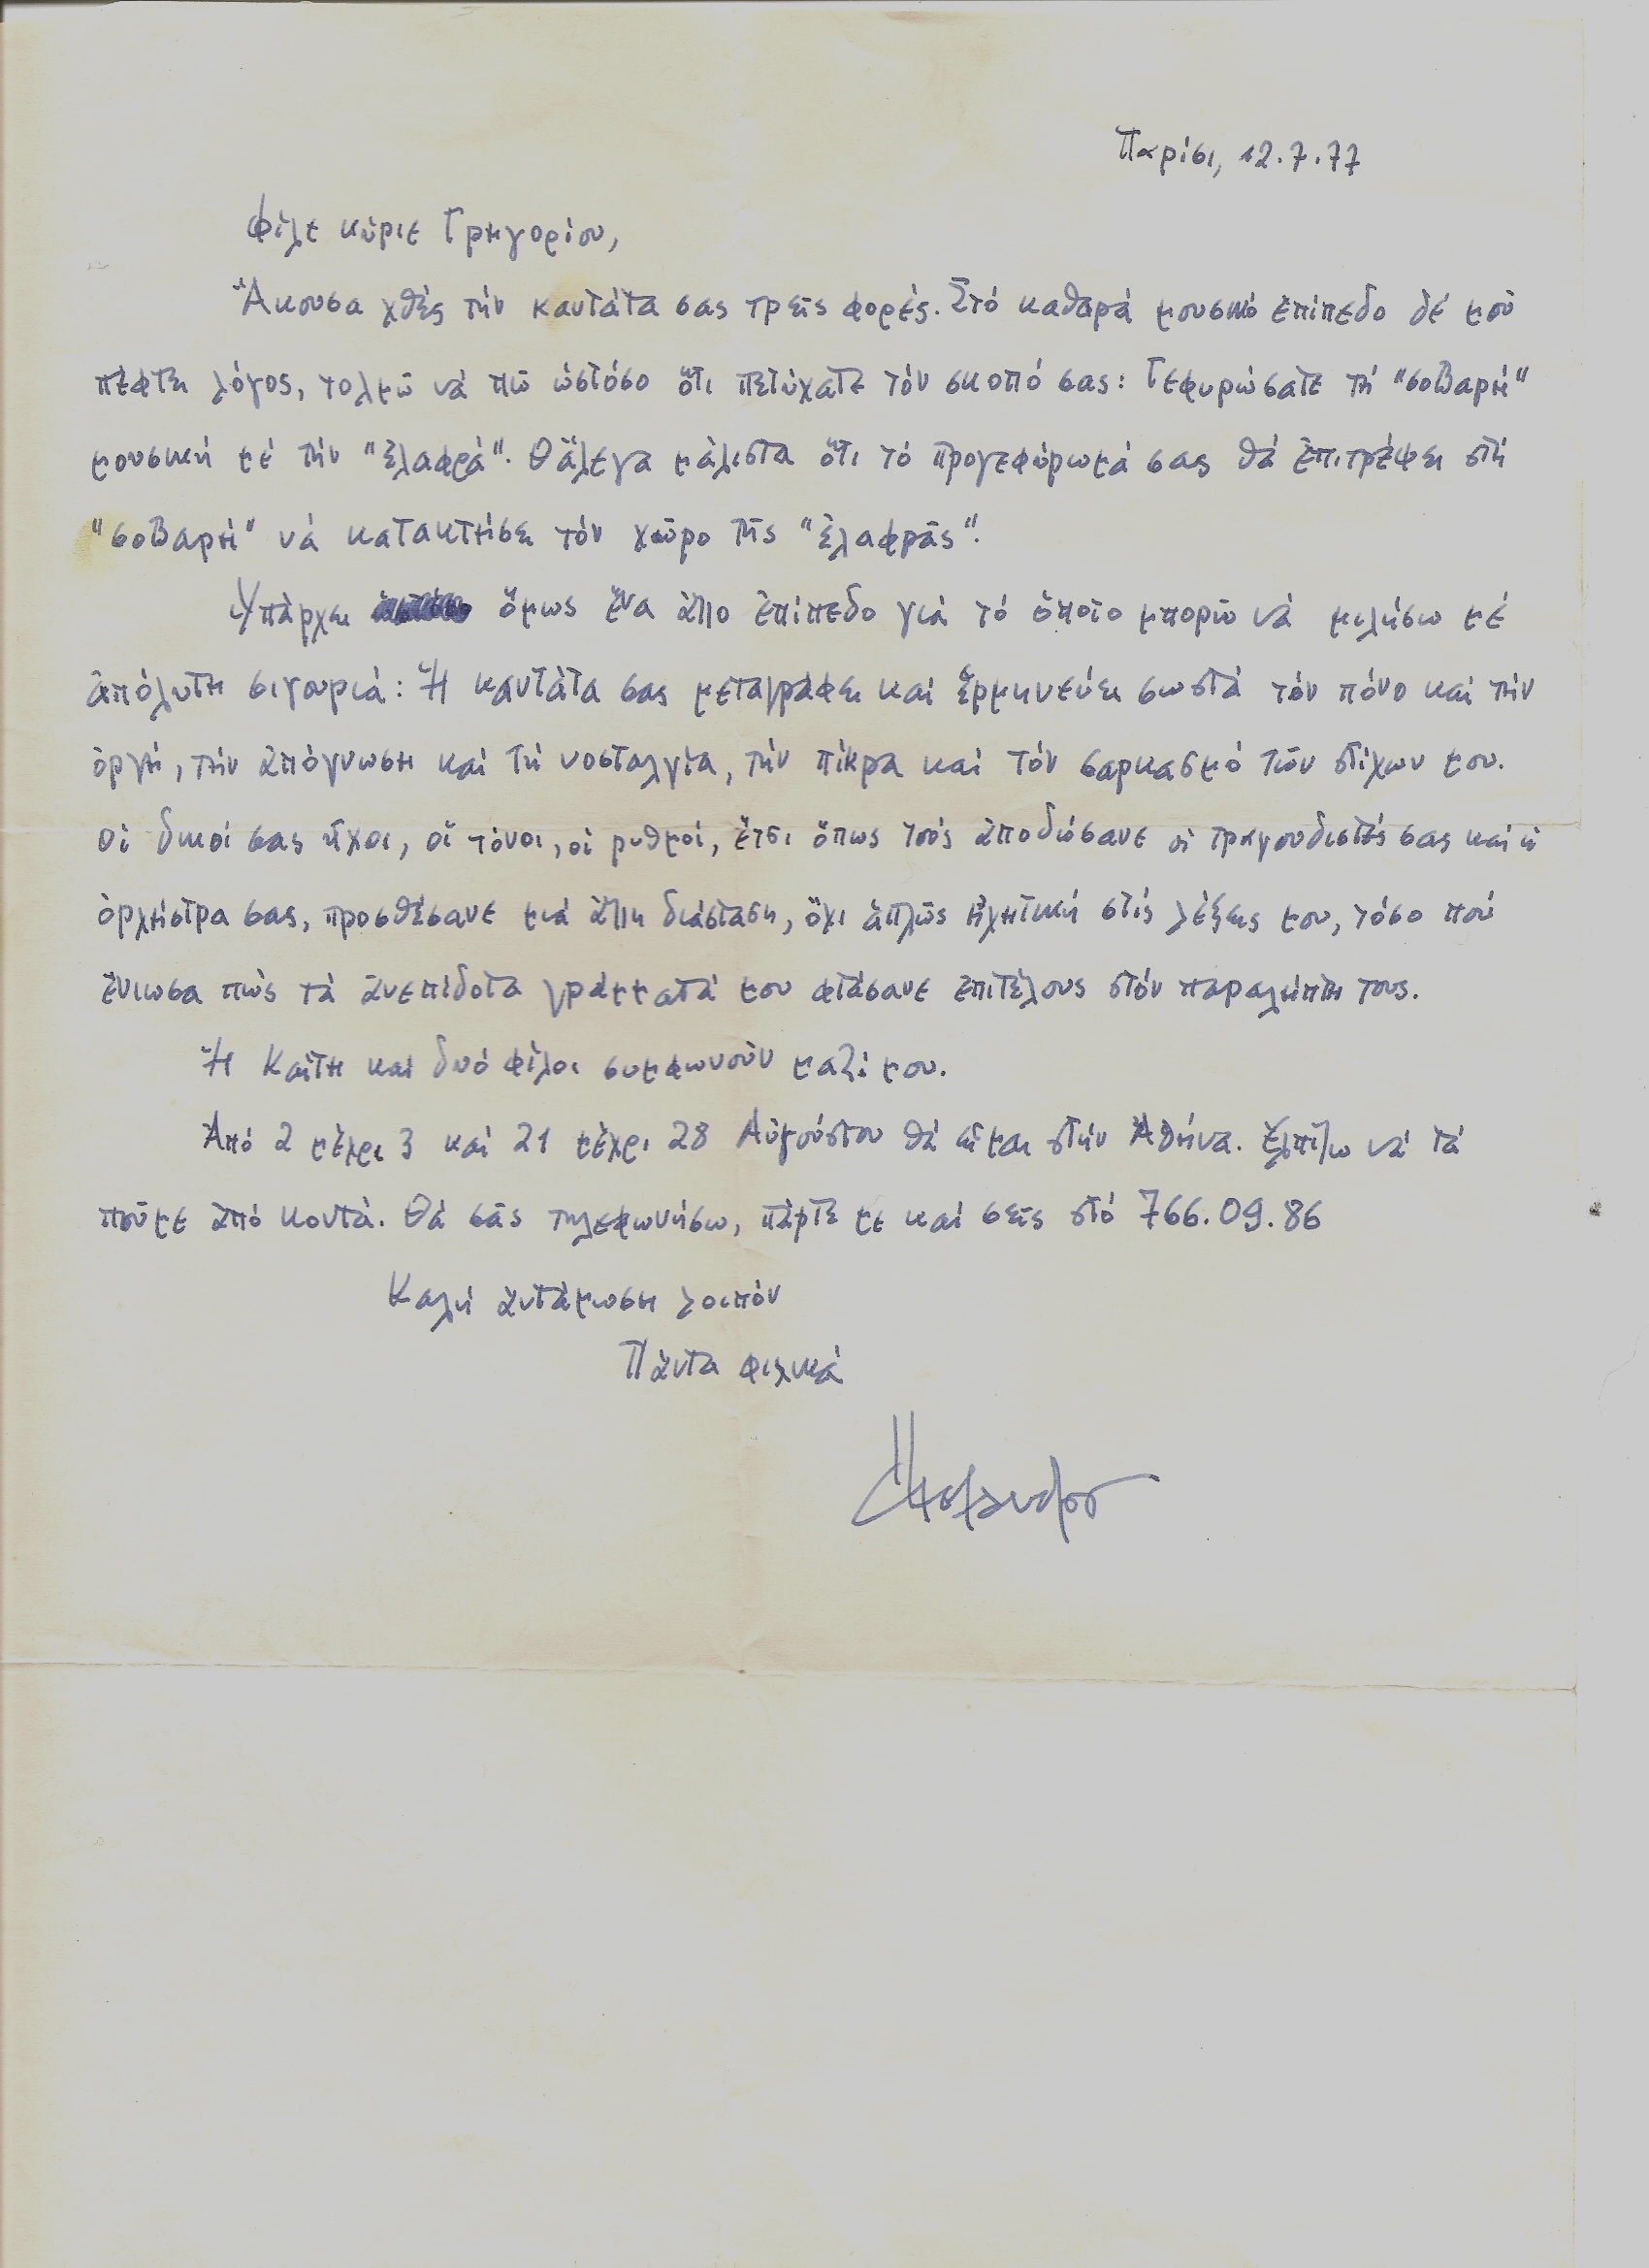 Παρίσι, 12.7.77
Φίλε κύριε Γρηγορίου,
Ἄκουσα χθές τήν καντάτα σας τρεῖς φορές. Στό καθαρά μουσικό ἐπίπεδο δέ μοῦ
πέφτει λόγος, τολμῶ νά πῶ ὡστόσο ὅτι πετύχατε τόν σκοπό σας: Γεφυρώσατε τή "σοβαρή"
μουσική μέ τήν "ἐλαφρά". Θἄλεγα μάλιστα ὅτι τό προγεφύρωμά σας θά ἐπιτρέψει στή
"σοβαρή" νά κατακτήσει τόν χῶρο τῆς "ἐλαφρᾶς".
Ὑπάρχει ὅμως ἕνα ἄλλο ἐπίπεδο γιά τό ὁποῖο μπορῶ νά μιλήσω μέ
ἀπόλυτη σιγουριά: Ἡ καντάτα σας μεταγράφει καί ἑρμηνεύει σωστά τόν πόνο καί τήν
ὀργή, τήν ἀπόγνωση καί τή νοσταλγία, τήν πίκρα καί τόν σαρκασμό τῶν στίχων μου.
Οἱ δικοί σας ἦχοι, οἱ τόνοι, οἱ ρυθμοί, ἔτσι ὅπως τούς ἀποδώσανε οἱ τραγουδιστές σας καί ἡ
ὀρχήστρα σας, προσθέσανε μιά ἄλλη διάσταση, ὄχι ἁπλῶς ἠχητική στίς λέξεις μου, τόσο πού
ἔνιωσα πώς τά ἀνεπίδοτα γράμματά μου φτάσανε ἐπιτέλους στόν παραλήπτη τους.
Ἡ Καίτη καί δυό φίλοι συμφωνοῦν μαζί μου.
Ἀπό 2 μέχρι 3 καί 21 μέχρι 28 Αὐγούστου θά εἶμαι στήν Ἀθήνα. Ἐλπίζω νά τά
ποῦμε ἀπό κοντά. Θά σᾶς τηλεφωνήσω, πάρτε με καί σεῖς στό 766.09.86
Καλή ἀντάμωση λοιπόν
Πάντα φιλικά